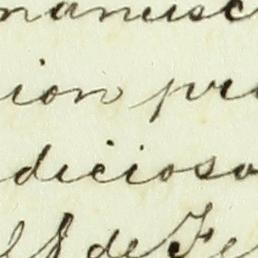 manusc
ion pr
dicioso
de Fe